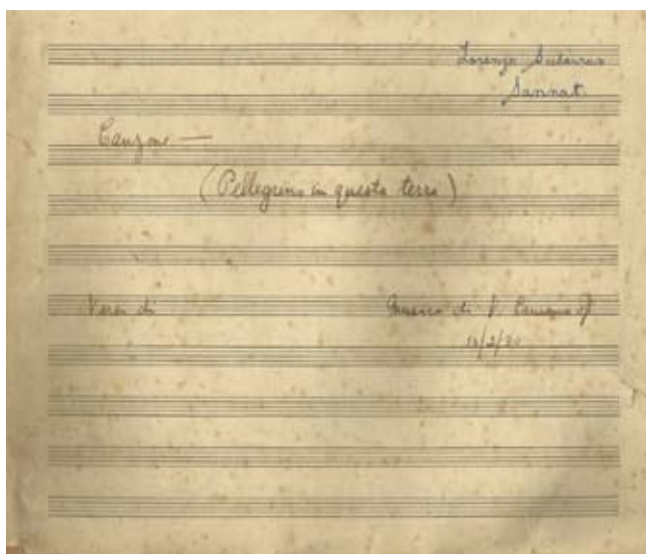 Lorenzo
Sannat
Canzone —
(Pellegrino in questa terra)
Versi di
Musica di